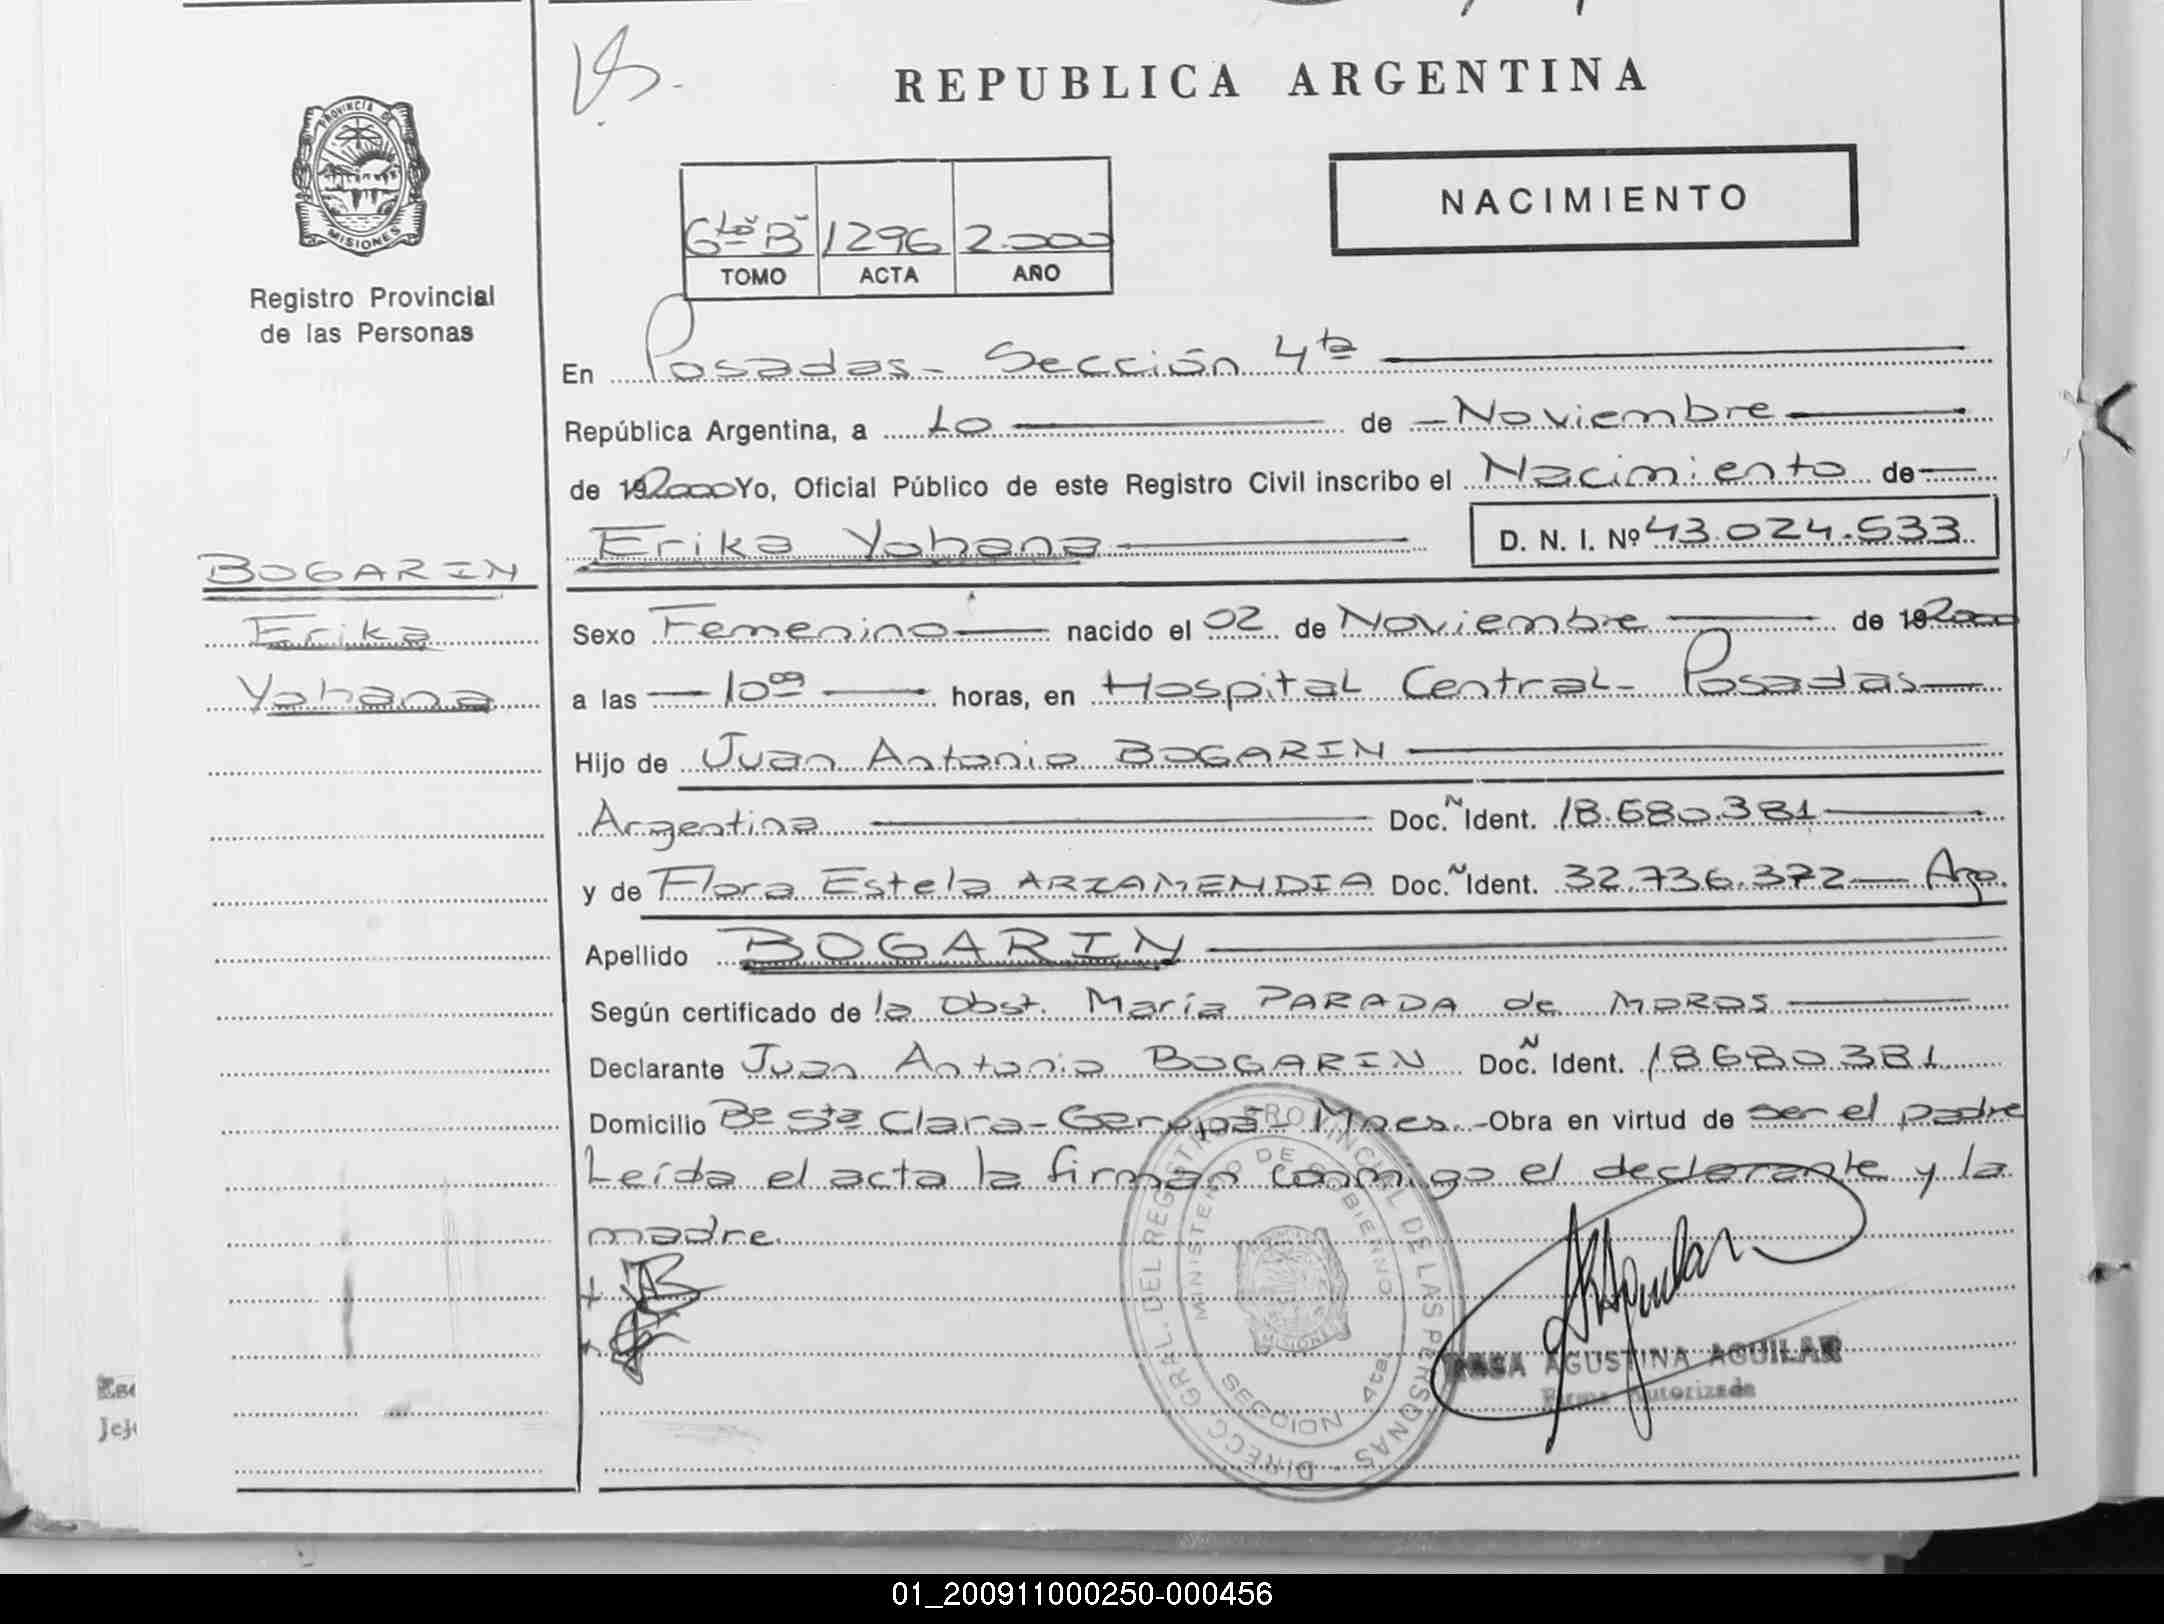 REPUBLICA ARGENTINA
PROVINCIA DE
MISIONES
Registro Provincial
de las Personas
NACIMIENTO
1296 2.000
TOMO ACTA AÑO
En Posadas - Sección 4ta
República Argentina, a 10 de Noviembre
de 192000 Yo, Oficial Público de este Registro Civil inscribo el Nacimiento de
Erika Yohana D. N. I. Nº 43.024.533
BOGARIN
Erika
Yohana
Sexo Femenino nacido el 02 de Noviembre de 192000
a las 10 horas, en Hospital Central - Posadas
Hijo de Juan Antonio BOGARIN
Argentina Doc. N Ident. 18.680.381
y de Flora Estela ARZAMENDIA Doc. N Ident. 32.736.372 - Arg.
Apellido BOGARIN
Según certificado de la Obst. María PARADA de MOROS
Declarante Juan Antonio BOGARIN Doc. N Ident. 18680381
Domicilio Bº Sta Clara - Garupá - Mnes. - Obra en virtud de ser el padre
Leída el acta la firman conmigo el declarante y la
madre.
DIRECC. GRAL. DEL REGISTRO PROVINCIAL DE LAS PERSONAS
MINISTERIO DE GOBIERNO
MISIONES
SECCION 4ta
AGUSTINA AGUILAR
Firma Autorizada
01_200911000250-000456